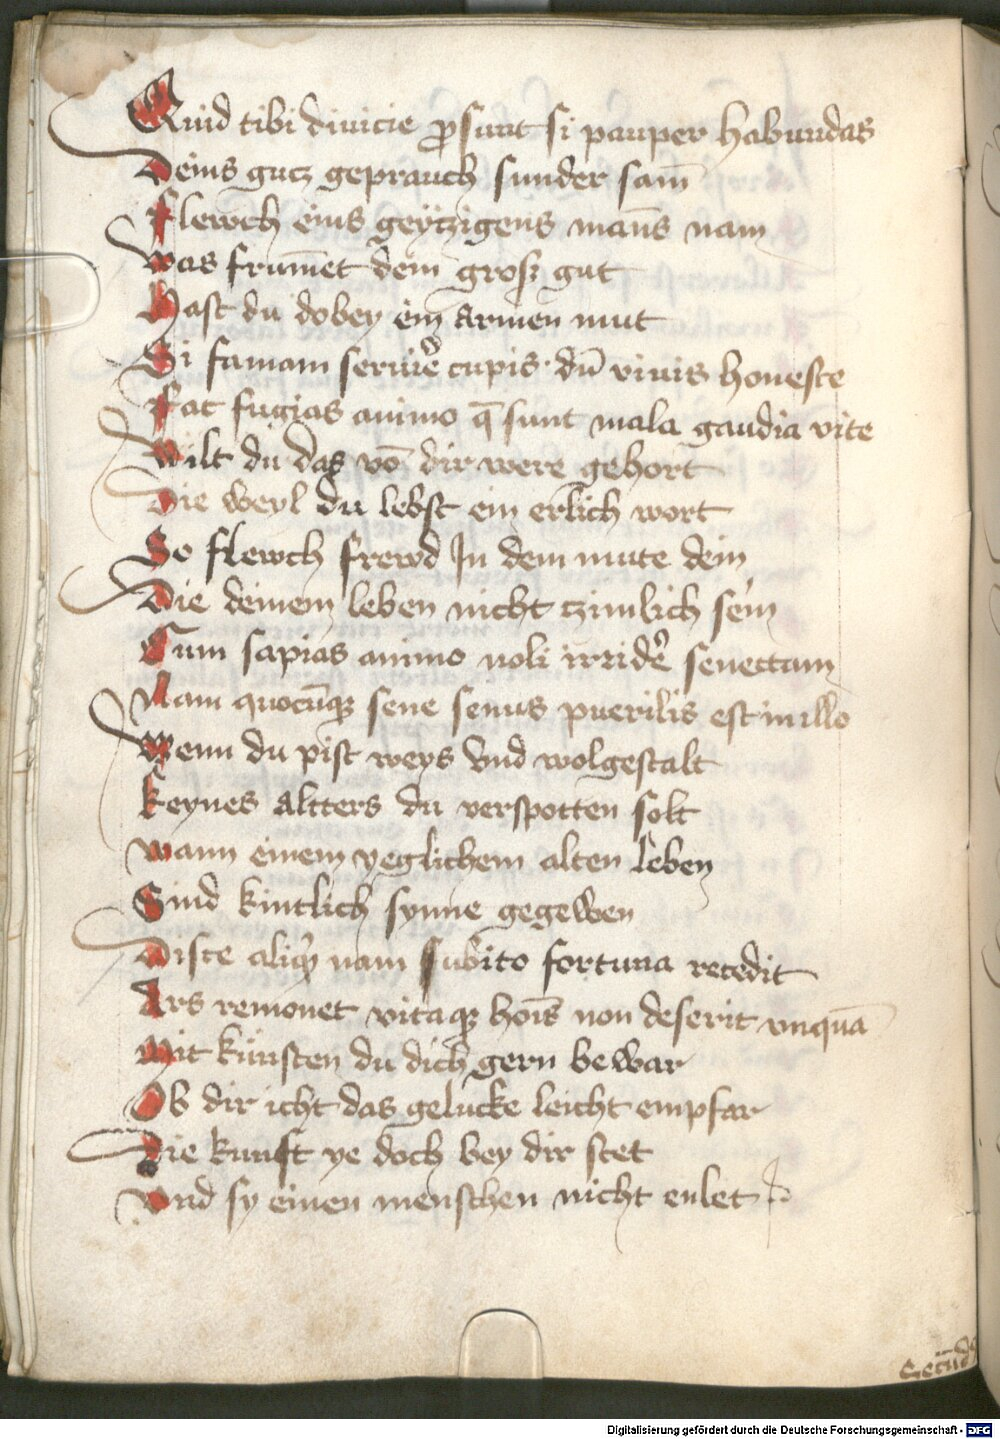 Quid tibi diuicie ꝓsunt si pauper habundas
Deins gutz geprauch sunder sam̄
Flewch eins geytzigens man̄s nam
Was frum̄et dem grosz gut
Hast du dobey ein armen mut
Si famam seruiꝰe cupis · dū viuis honeste
Fac fugias animo q̄ sunt mala gaudia vite
Wilt du das vō dir were gehort
Die weyl du lebst ein erlich wort
So flewch frewd In dem mute dein
Die deinem leben nicht tzimlich sein
Cum sapias animo noli irridꝰe senectam
Nam quocūqꝫ sene sensus puerilis est in illo
Wenn du pist weys vnd wolgestalt
Keynes altters du verspotten solt
Wann einem yeglichem alten leben
Sind kintlich synne gegewen
Disce aliqͥd nam subito fortuna recedit
Ars remonet vitaqꝫ hoīs non deserit vnquā
Mit künsten du dich gern bewar
Ob dir icht das gelucke leicht empfar
Die kunst ye doch bey dir stet
Vnd sy einen menschen nicht enlet
Digitalisierung gefördert durch die Deutsche Forschungsgemeinschaft - DFG